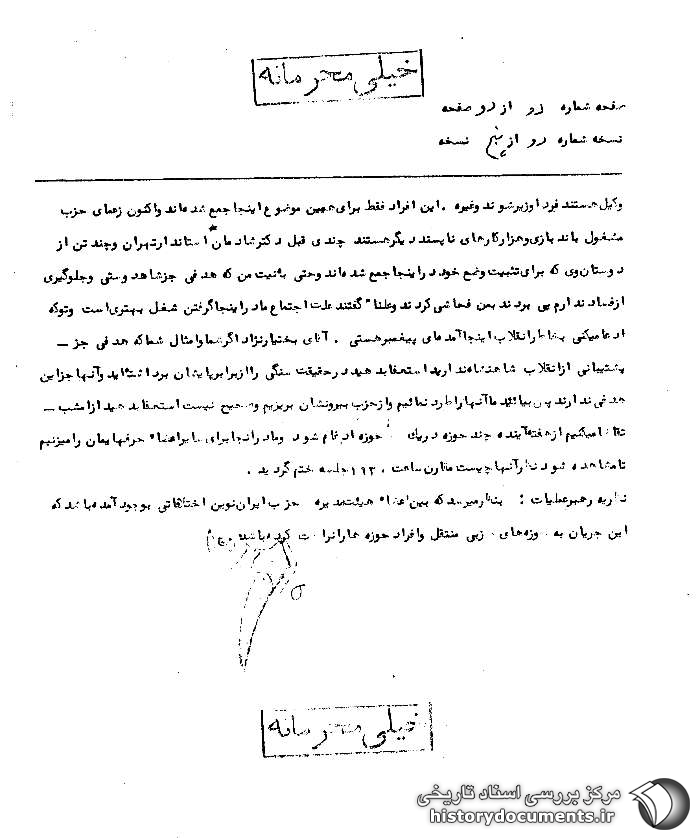 خیلی محرمانه
صفحه شماره دو از دو صفحه
نسخه شماره دو از پنج نسخه
وکیل هستند فردا وزیر شوند وغیره . این افراد فقط برای همین موضوع اینجا جمع شده‌اند واکنون زعمای حزب
مشغول باند بازی وهزار کارهای ناپسند دیگر هستند چندی قبل دکتر شادمان استاندار تهران وچند تن از
دوستان وی که برای تثبیت وضع خود در اینجا جمع شده‌اند وحتی به نیت من که هدفی جز شاهدوستی وجلوگیری
از فساد ندارم پی بردند بمن فحاشی کردند وعلنا" گفتند علت اجتماع ما در اینجا گرفتن شغل بهتری است وتو که
ادعا میکنی بخاطر انقلاب اینجا آمده‌ای پیغمبر هستی . آقای بختیارنژاد اگر شما وامثال شما که هدفی جز ـ
پشتیبانی از انقلاب شاهنشاه ندارید استعفا بدهید در حقیقت سنگی را از برابر پایشان برداشته‌اید وآنها جز این
هدفی ندارند پس بیائید ما آنها را طرد نمائیم واز حزب بیرونشان بریزیم وصحیح نیست استعفا بدهید از امشب ـ
تقاضا میکنیم از هفته آینده چند حوزه در یک حوزه ادغام شود وما در آنجا برای سایر اعضاء حرفهایمان را میزنیم
تا مشاهده شود نظر آنها چیست مقارن ساعت جلسه ختم گردید .
نظریه رهبر عملیات : بنظر میرسد که بین اعضاء هیئت مدیره حزب ایران نوین اختلافاتی بوجود آمده باشد که
این جریان به حوزه‌های حزبی منتقل وافراد حوزه‌ها را ناراحت کرده باشد
خیلی محرمانه
مرکز بررسی اسناد تاریخی
historydocuments.ir